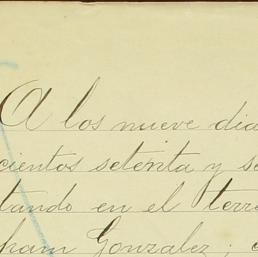 A los nueve dia
cientos setenta y se
tando en el terre
ham Gonzalez;